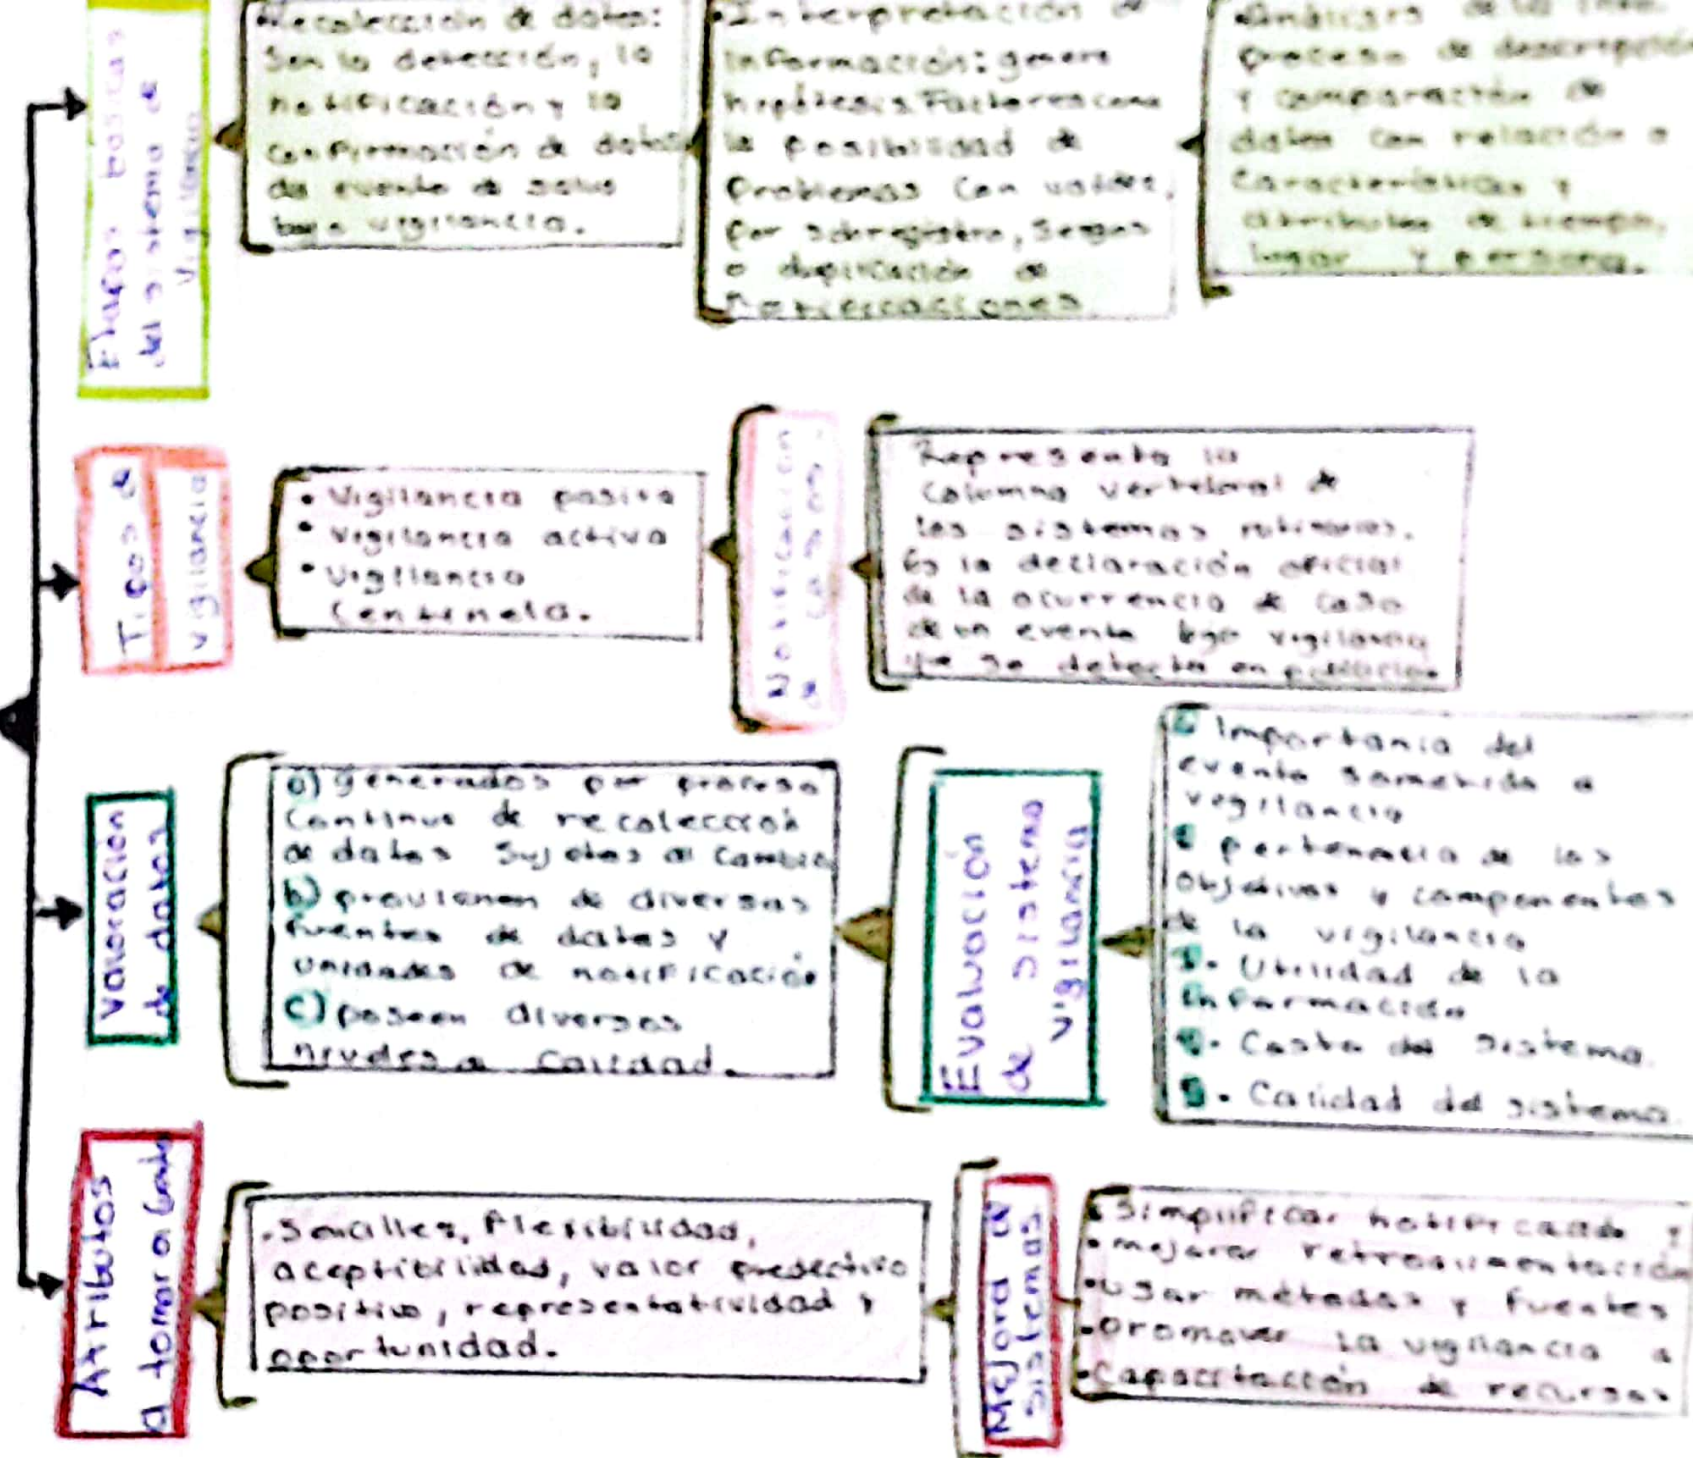 Etapas basicas
del sistema de
Vigilancia
•Recolección de datos:
Son la detección, la
notificación y la
confirmación de datos
de evento de salud
bajo vigilancia.
•Interpretación de
Información: genera
hipótesis. Factores como
la posibilidad de
problemas con validez,
por subregistro, sesgos
o duplicación de
notificaciones.
•Análisis de la info.
proceso de descripción
y comparación de
datos con relación a
características y
atributos de tiempo,
lugar y persona.
Tipos de
vigilancia
• Vigilancia pasiva
• Vigilancia activa
• Vigilancia
Centinela.
Notificación
de casos.
Representa la
Columna vertebral de
los sistemas rutinarios.
Es la declaración oficial
de la ocurrencia de caso
de un evento bajo vigilancia
que se detecta en población
Valoracion
de datos
a) generados por proceso
Continuo de recolección
de datos Sujetos al cambio
b) provienen de diversas
fuentes de datos y
unidades de notificación
c) poseen diversos
niveles de calidad.
Evaluación
de sistema
vigilancia
Importania del
evento sometido a
vigilancia
pertenencia de los
Objetivos y componentes
de la vigilancia
3. Utilidad de la
Información
4. Costo del sistema.
5. Calidad del sistema.
Atributos
a tomar a
•Sencillez, flexibilidad,
aceptibilidad, valor predectivo
positivo, representatividad y
oportunidad.
Mejora de
sistemas.
•Simplificar notificación y
•mejorar retroalimentación
•Usar métodos y fuentes
•promover la vigilancia a
•Capacitación de recursos